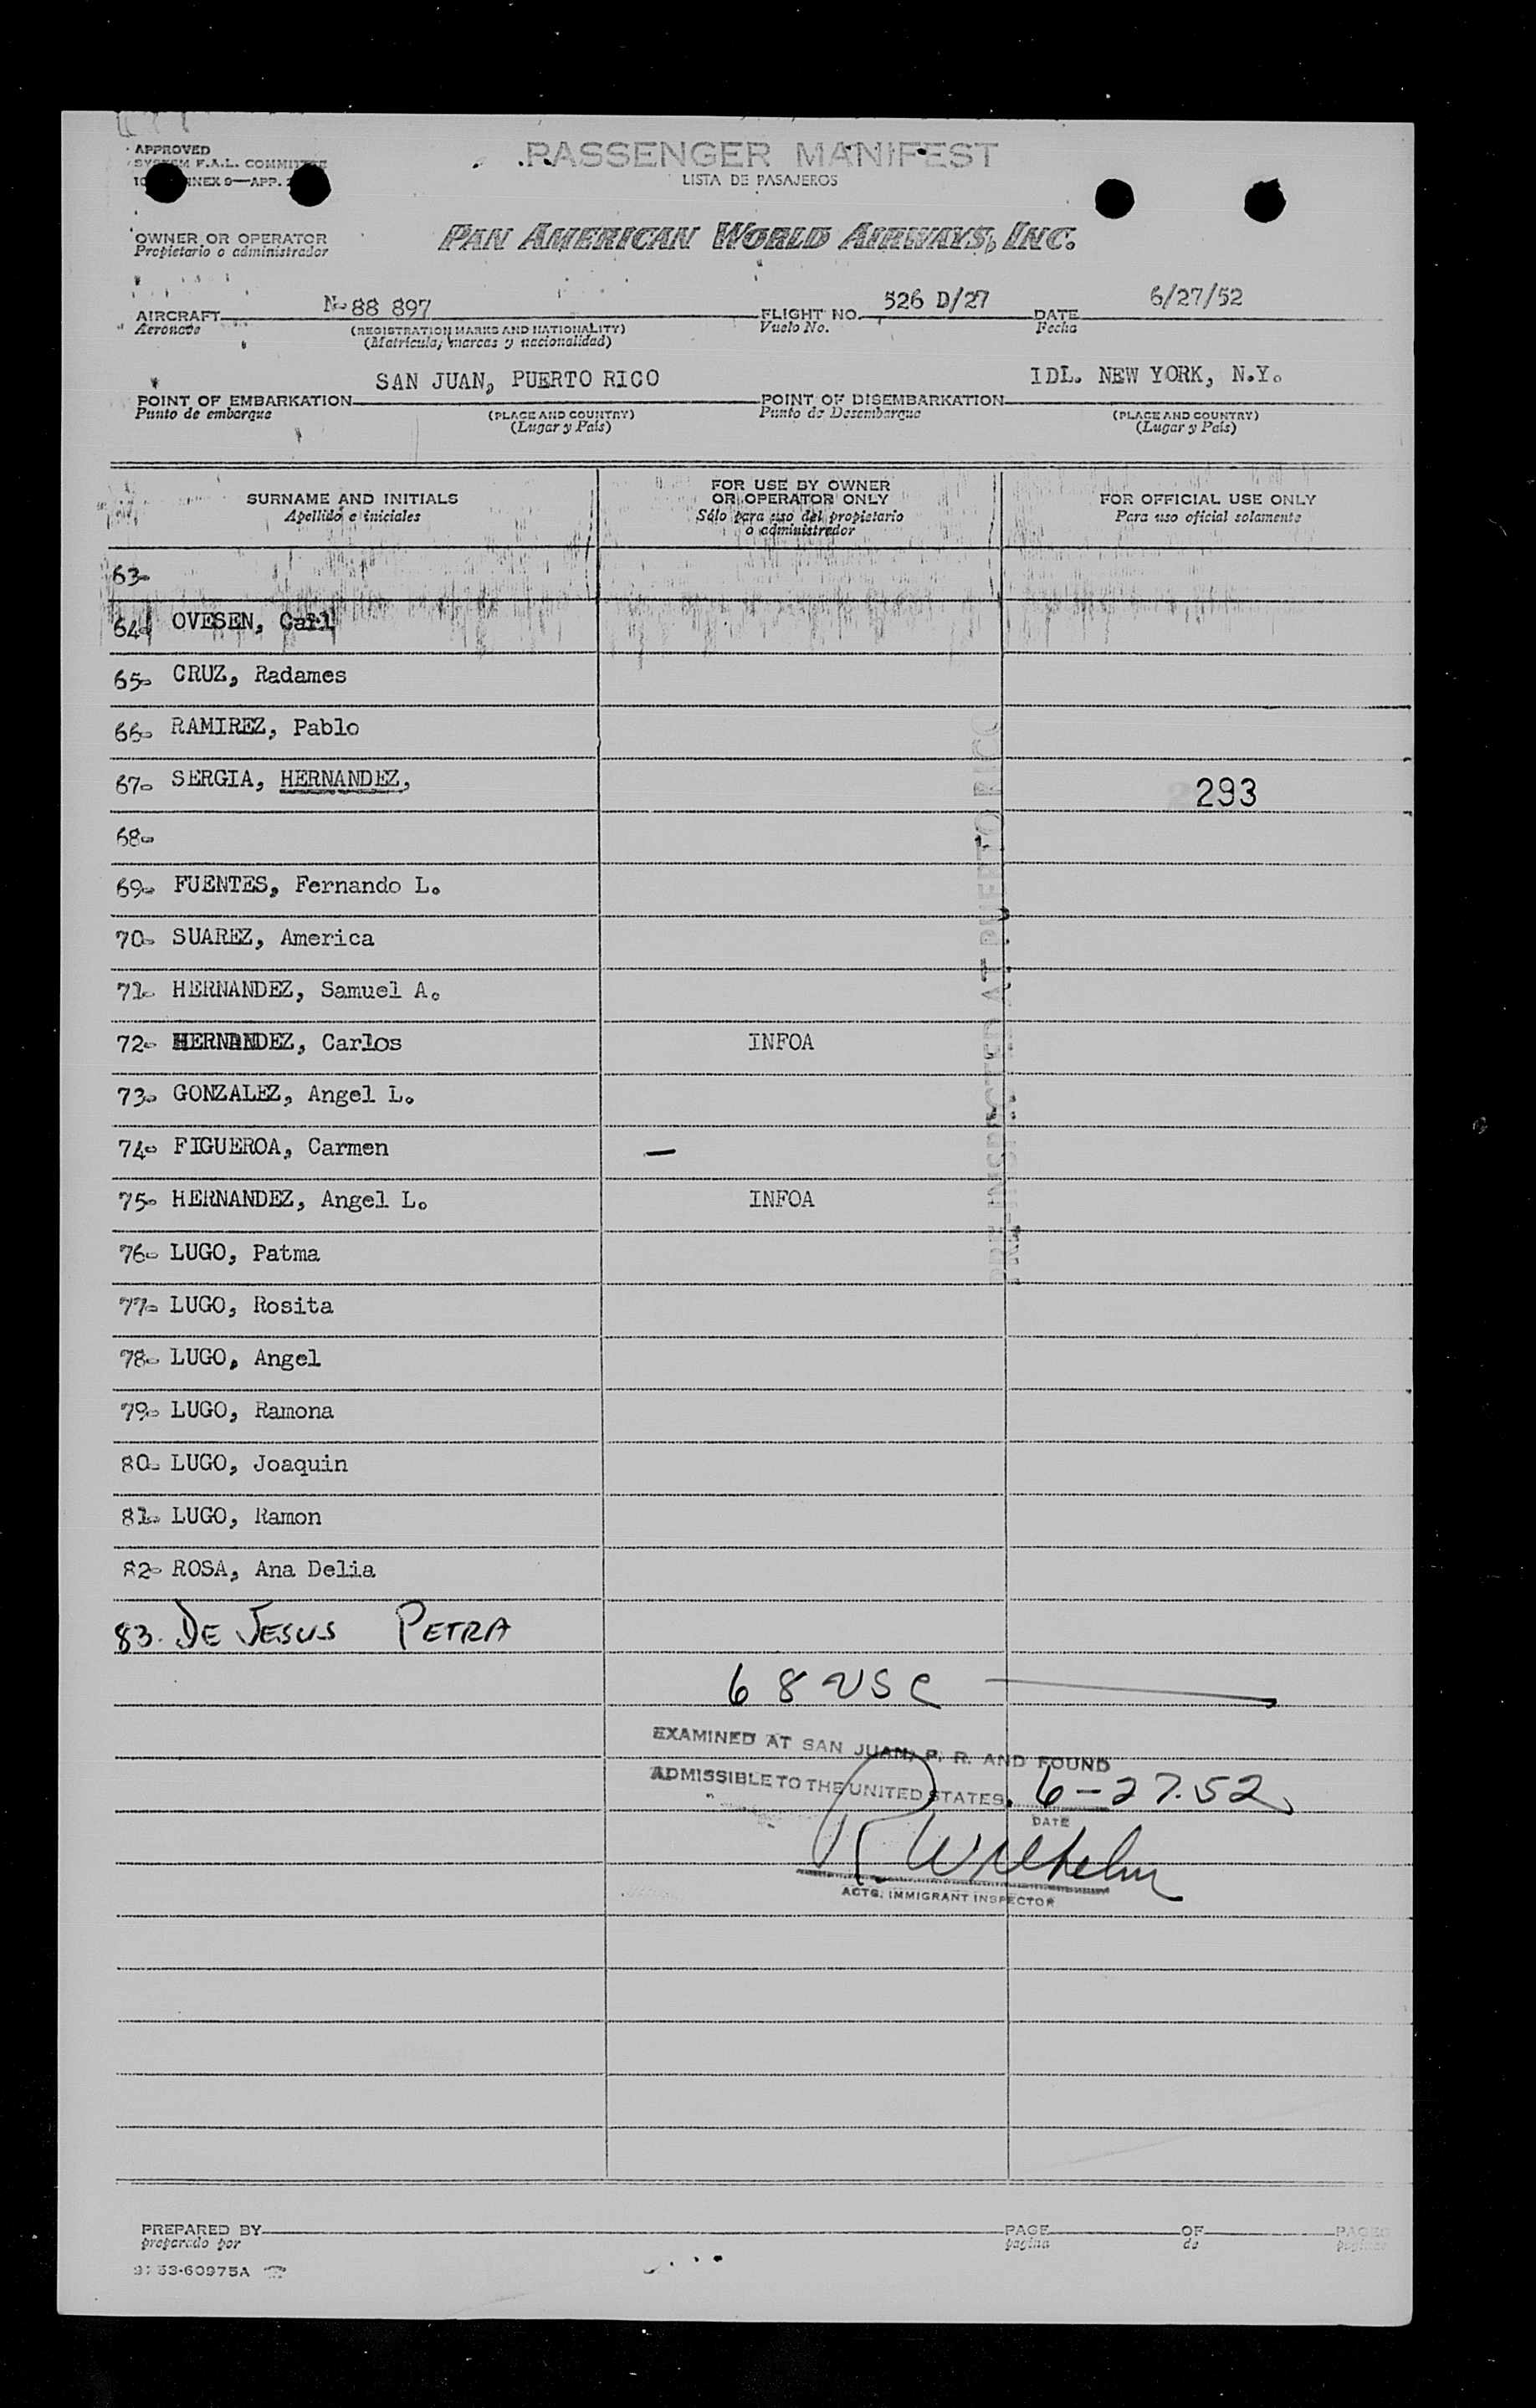 APPROVED
SYSTEM F.A.L. COMMITTEE
ANNEX 9—APP.
PASSENGER MANIFEST
LISTA DE PASAJEROS
OWNER OR OPERATOR
Propietario o administrador
PAN AMERICAN WORLD AIRWAYS, INC.
AIRCRAFT N-88 897 FLIGHT NO. 526 D/27 DATE 6/27/52
Aeronave (REGISTRATION MARKS AND NATIONALITY) Vuelo No. Fecha
(Matrícula, marcas y nacionalidad)
POINT OF EMBARKATION SAN JUAN, PUERTO RICO POINT OF DISEMBARKATION IDL. NEW YORK, N.Y.
Punto de embarque (PLACE AND COUNTRY) Punto de Desembarque (PLACE AND COUNTRY)
(Lugar y País) (Lugar y País)
SURNAME AND INITIALS FOR USE BY OWNER OR OPERATOR ONLY FOR OFFICIAL USE ONLY
Apellido e iniciales Sólo para uso del propietario o administrador Para uso oficial solamente
63-
64- OVESEN, Carl
65- CRUZ, Radames
66- RAMIREZ, Pablo
67- SERGIA, HERNANDEZ, 293
68-
69- FUENTES, Fernando L.
70- SUAREZ, America
71- HERNANDEZ, Samuel A.
72- HERNANDEZ, Carlos INFOA
73- GONZALEZ, Angel L.
74- FIGUEROA, Carmen —
75- HERNANDEZ, Angel L. INFOA
76- LUGO, Patma
77- LUGO, Rosita
78- LUGO, Angel
79- LUGO, Ramona
80- LUGO, Joaquin
81- LUGO, Ramon
82- ROSA, Ana Delia
83. DE JESUS PETRA
PRE-INSPECTED AT PUERTO RICO
68 USC
EXAMINED AT SAN JUAN, P. R. AND FOUND
ADMISSIBLE TO THE UNITED STATES. 6-27.52
DATE
R Wilhelm
ACTG. IMMIGRANT INSPECTOR
PREPARED BY PAGE OF PAGES
preparado por pagina de paginas
53-60975A